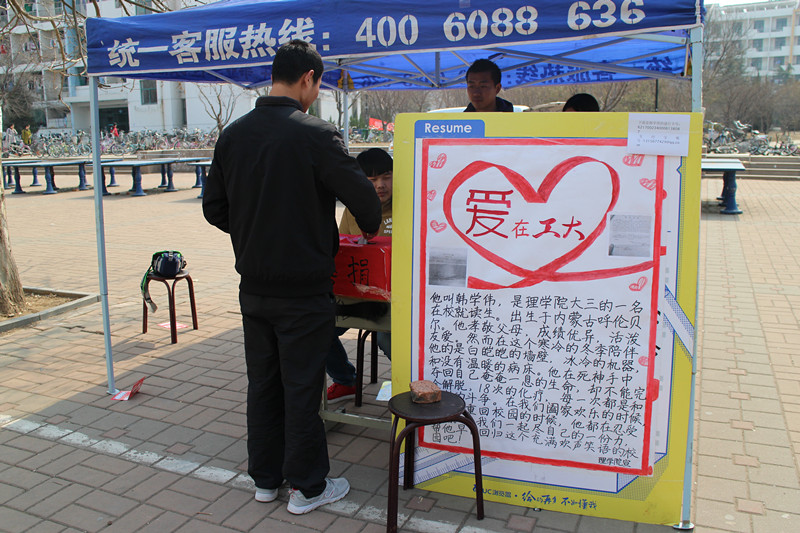 统一客服热线: 400 6088 636
捐
Resume
爱在工大
他叫韩学伟，是理学院大三的一名
在校就读生。出生于内蒙古呼伦贝
尔。他孝敬父母，成绩优异，活泼
友爱。然而在这个寒冷的冬季陪伴
他的是白皑皑的墙壁，冰冷的机器，
和没有温暖的病床。他在死神手中
夺回自己奄奄一息的生命，却不能完
解脱。18次的化疗，每一次都是和
的斗争。在我们阖家欢乐的时候
重回校园的时候，他都在忍受
我们一起尽自己的一份力，
帮他早 回归这个充满欢声笑语的校
园吧！
理学院宣
UC浏览器
不必懂我